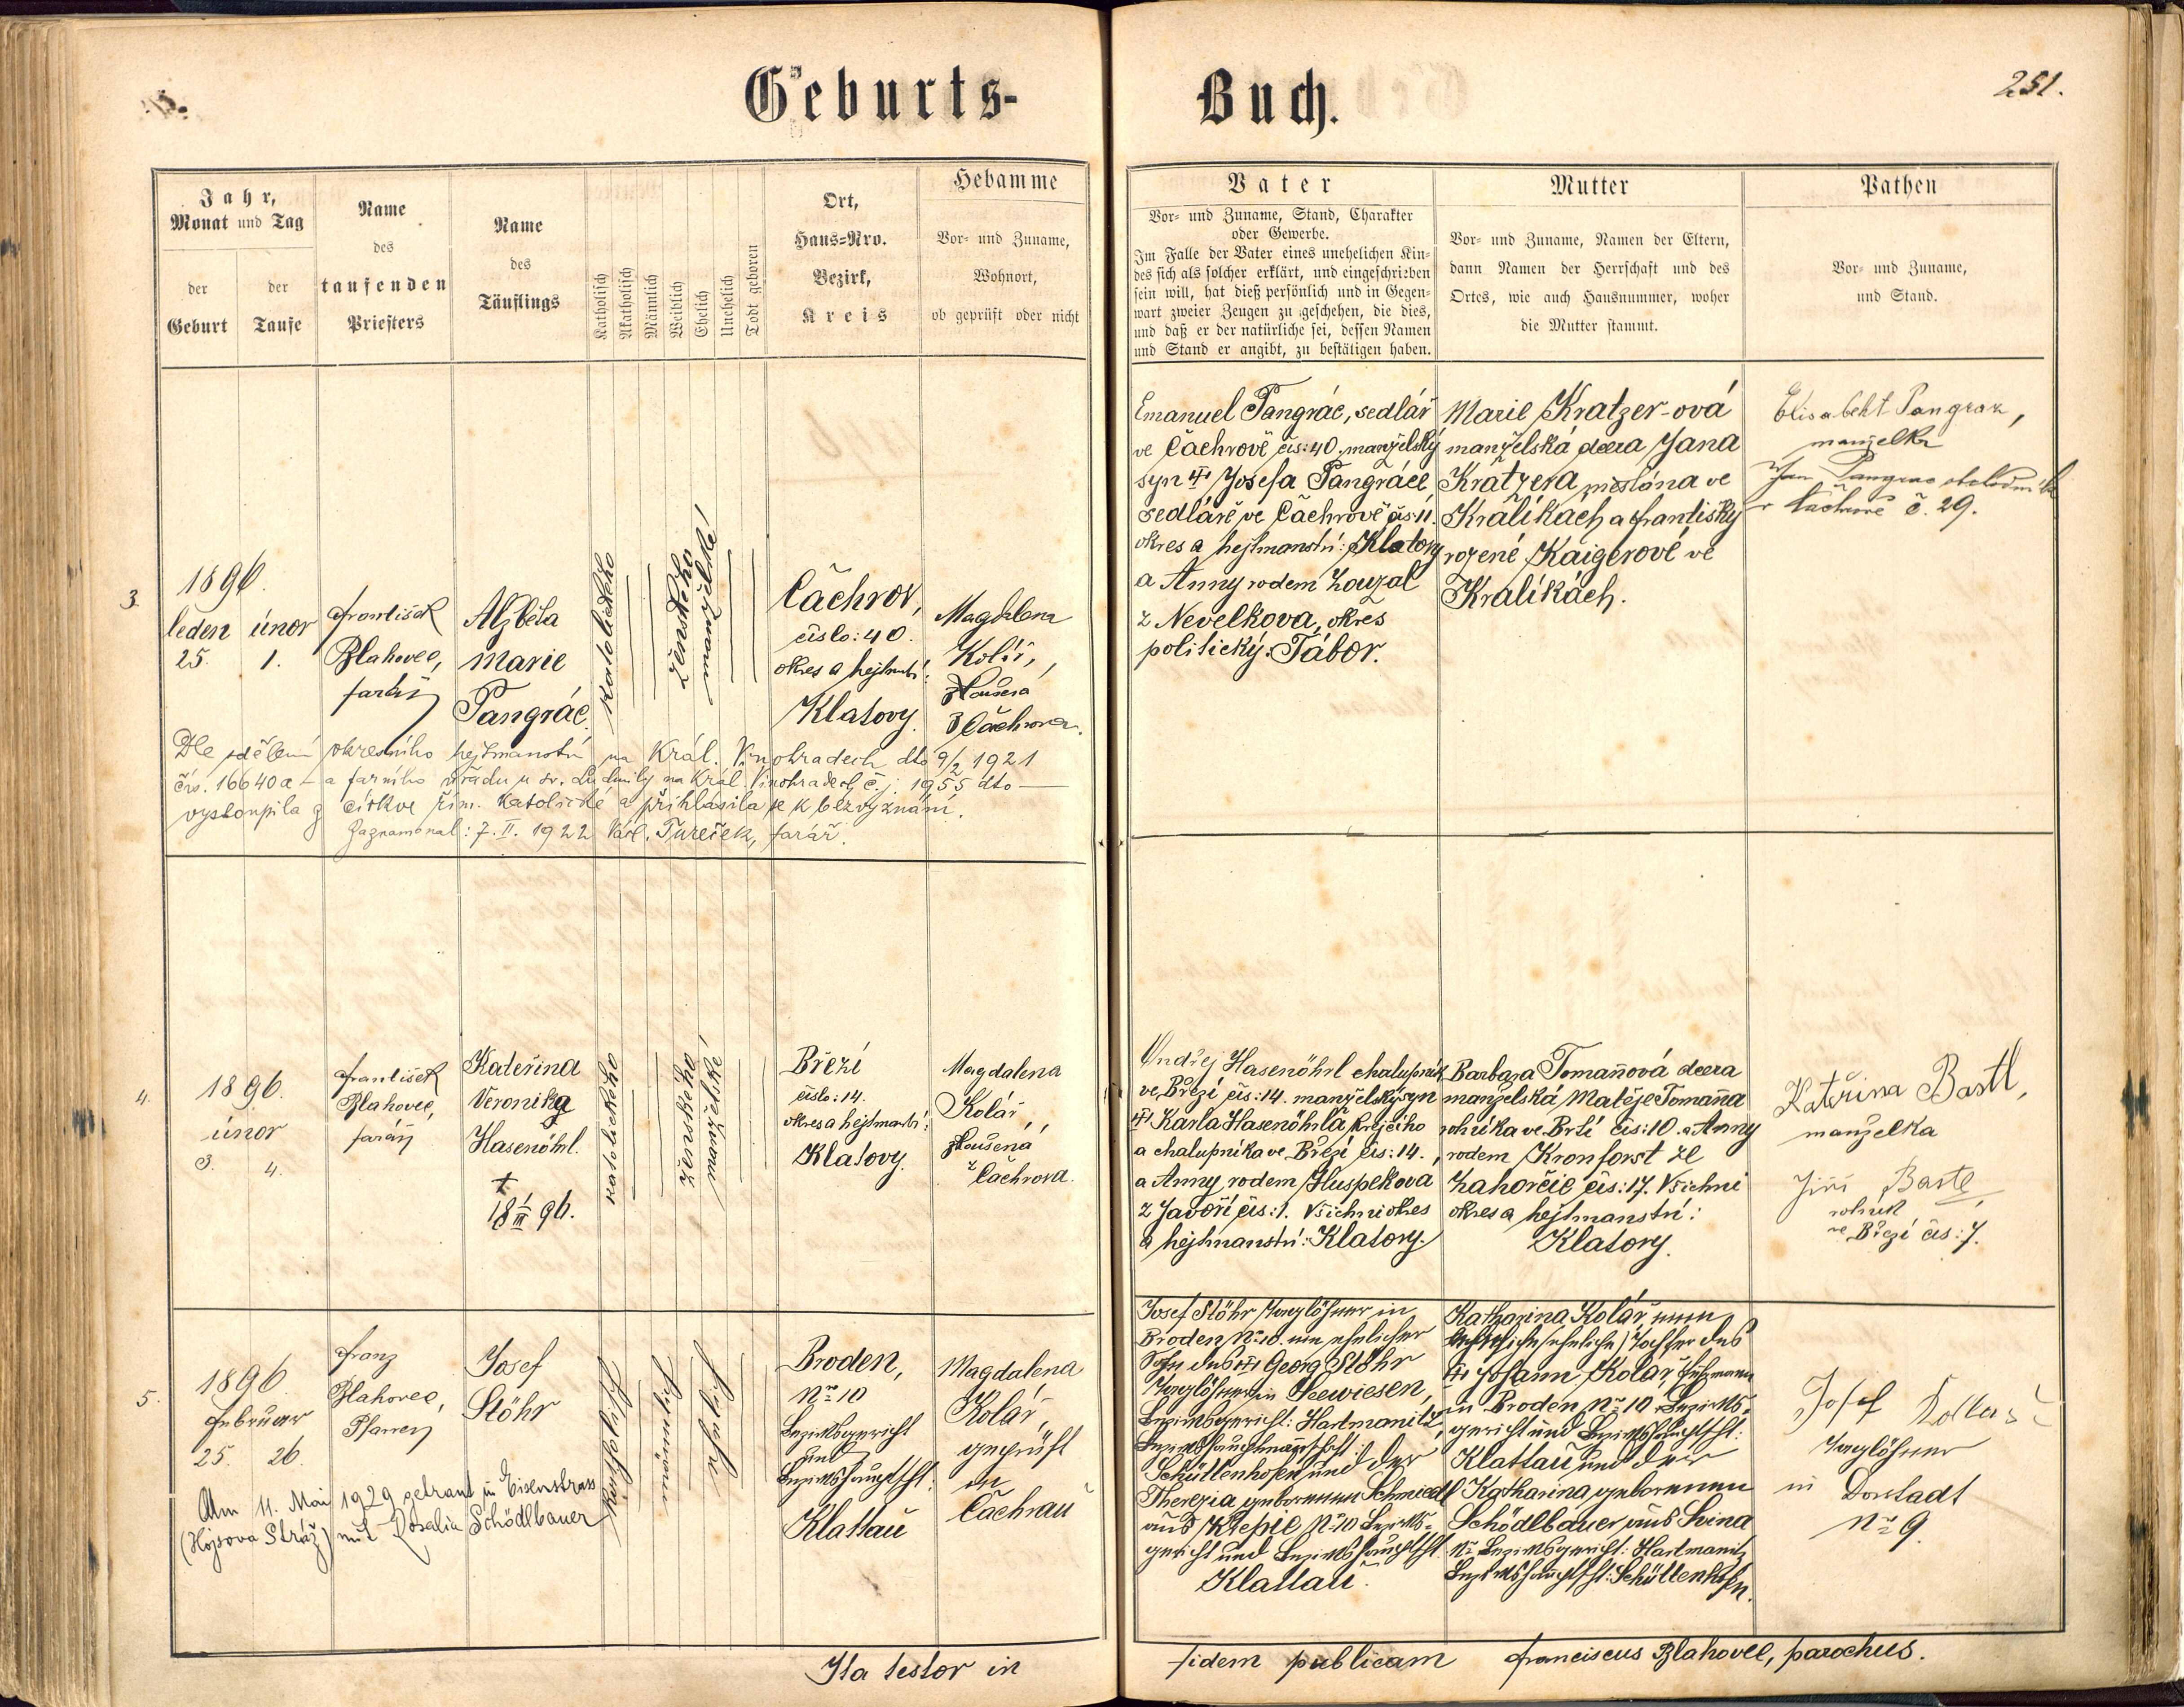 Geburts-
Buch.
251.
Jahr,
Monat und Tag
der
Geburt
der
Taufe
Name
des
taufenden
Priesters
Name
des
Täuflings
Katholisch
Akatholisch
Männlich
Weiblich
Ehelich
Unehelich
Todt geboren
Ort,
Haus-Nro.
Bezirk,
Kreis
Hebamme
Vor- und Zuname,
Wohnort,
ob geprüft oder nicht
Vater
Vor- und Zuname, Stand, Charakter
oder Gewerbe.
Im Falle der Vater eines unehelichen Kin-
des sich als solcher erklärt, und eingeschrieben
sein will, hat dieß persönlich und in Gegen-
wart zweier Zeugen zu geschehen, die dies,
und daß er der natürliche sei, dessen Namen
und Stand er angibt, zu bestätigen haben.
Mutter
Vor- und Zuname, Namen der Eltern,
dann Namen der Herrschaft und des
Ortes, wie auch Hausnummer, woher
die Mutter stammt.
Pathen
Vor- und Zuname,
und Stand.
3.
1896.
leden únor
25. 1.
František
Blahovec,
farář
Alžběta
Marie
Pangrác
katolického
ženského
manželské
Čachrov,
číslo: 40.
okres a hejtmství:
Klatovy.
Magdalena
Kolář,
zkoušená
z Čachrova.
Emanuel Pangrác, sedlář
ve Čachrově čís: 40. manželský
syn † Josefa Pangráce
sedláře ve Čachrově čís: 11.
okres a hejtmanství: Klatovy
a Anny rodem Louzal
z Nevelkova, okres
politický: Tábor.
Marie Kratzer-ová
manželská dcera Jana
Kratzera měšťana ve
Králíkách a Františky
rozené Kaigerové ve
Kralíkách.
Elisabeht Pangraz,
manželka
Jan Pangrac
v Čachrově č. 29.
Dle sdělení okresního hejtmanství na Král. Vinohradech dto 9/2 1921
čís. 16640 a – a farního úřadu u sv. Ludmily na Král. Vinohradech č. j. 1955 dto —
vystoupila z církve řím. katolické a přihlásila se k bezvyznání.
Zaznamenal: 7. II. 1922 Kar. Tureček, farář.
4.
1896.
únor
3. 4.
František
Blahovec,
farář
Kateřina
Veronika
Hasenöhrl.
†
18/III 96.
katolického
ženského
manželské
Březí
číslo: 14.
okres a hejtmanství:
Klatovy.
Magdalena
Kolář
zkoušená
z Čachrova.
Ondřej Hasenöhrl chalupník
ve Březí čís: 14. manželský syn
† Karla Hasenöhrla krejčího
a chalupníka ve Březí čís: 14.,
a Anny rodem Huspekova
z Javoří čís: 1. Všichni okres
a hejtmanství: Klatovy.
Barbara Tomanová dcera
manželská Matěje Tomana
rolníka ve Brtí čís: 10. a Anny
rodem Kronforst ze
Zahorčic čís: 17. Všichni
okres a hejtmanství:
Klatovy.
Kateřina Bastl,
manželka
Jiří Bastl,
rolník
ve Březí čís: 7.
5.
1896
Februar
25. 26.
Franz
Blahovec,
Pfarrer
Josef
Stöhr
Katholisch
männl.
Ehelich
Broden,
Nro 10
Bezirksgericht
und
Bezirkshauptscht:
Klattau
Magdalena
Kolář,
geprüft
in
Čachrau
Josef Stöhr Taglöhner in
Broden, No 10. ein ehelicher
Sohn des † Georg Stöhr
Taglöhner in Seewiesen,
Bezirksgericht: Hartmanitz,
Bezirkshauptmannschaft:
Schüttenhofen und der
Therezia geborenen Schmiedl
aus Křepic No 10 Bezirks-
gericht und Bezirkshauptscht.
Klattau.
Katharina Kolář, eine
eheliche Tochter des
† Johann Kolář,
in Broden, No 10 Bezirks-
gericht und Bezirkshauptscht:
Klattau und der
Katharina geborenen
Schödlbauer aus Svina
No Bezirksgericht: Hartmanitz
Bezirkshauptscht: Schüttenhofen.
Josef Kollař
Taglöhner
in Dorstadt
No 9.
Am 11. Mai 1929 getraut in Eisenstrass
(Hojsova Stráž) mit Rosalia Schödlbauer
Ita testor in
fidem publicam Franciscus Blahovec, parochus.